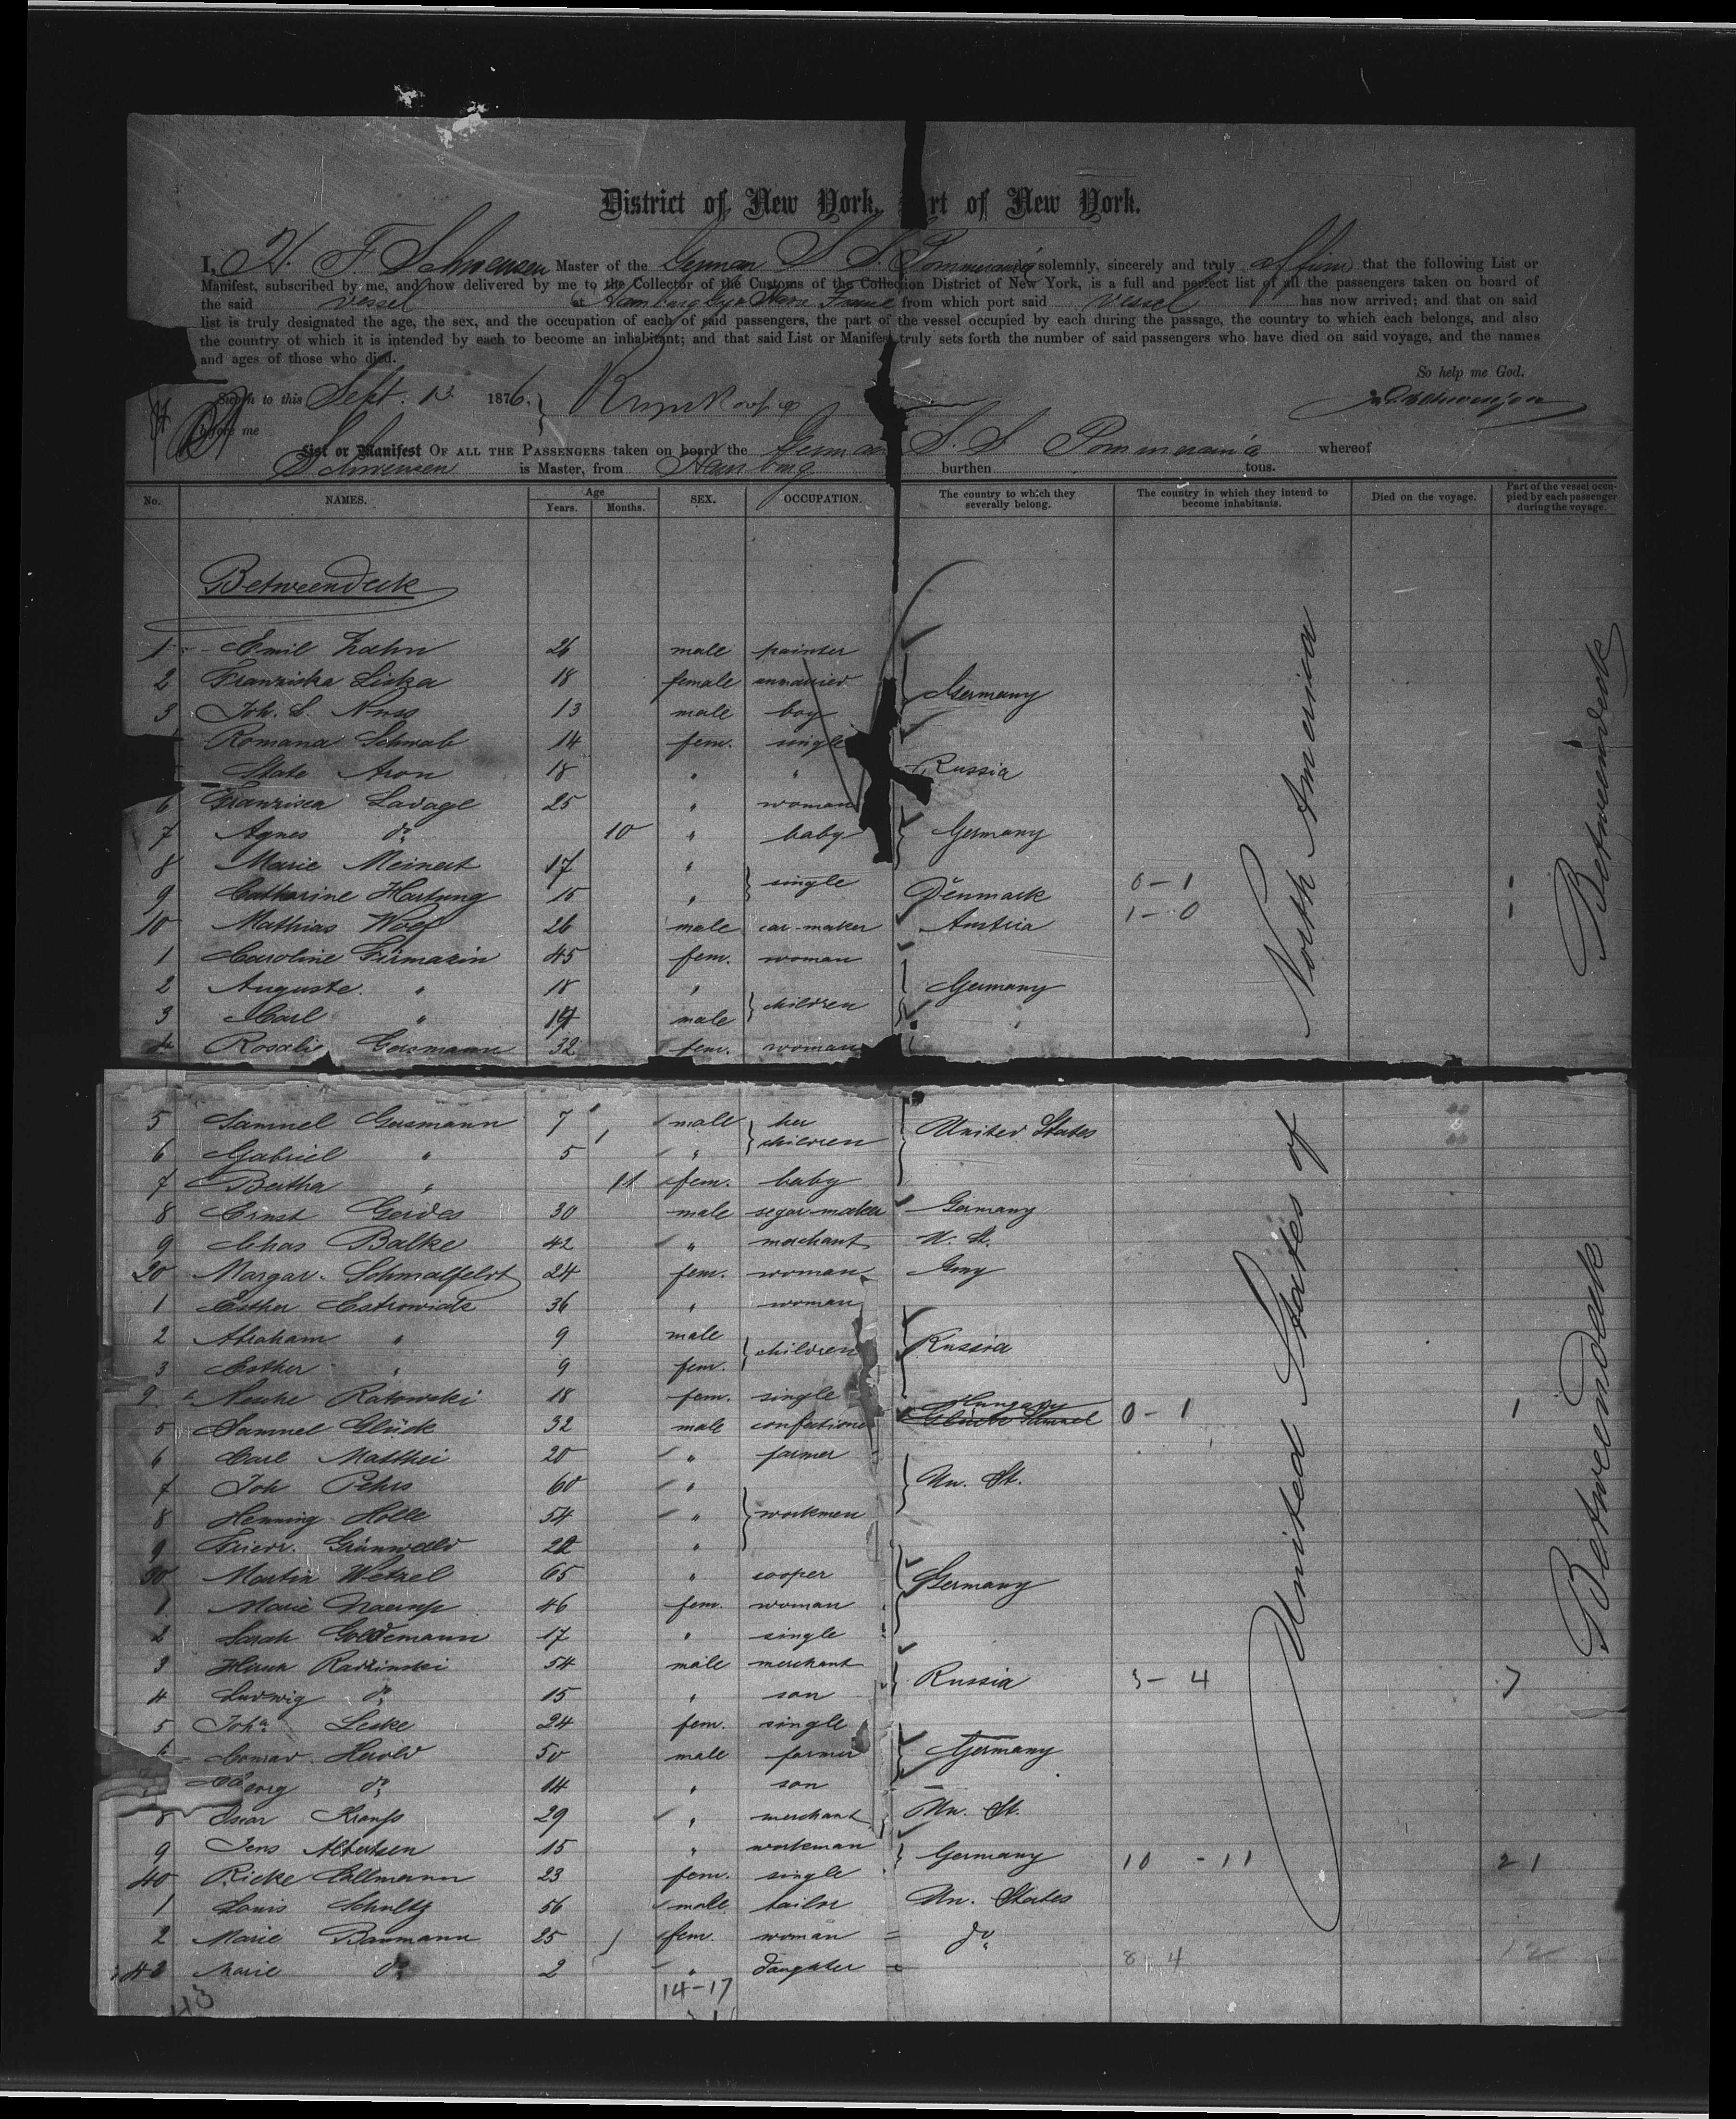 District of New York, Port of New York.
I, H. F. Schwensen Master of the German S. S. Pommerania solemnly, sincerely and truly affirm that the following List or
Manifest, subscribed by me, and now delivered by me to the Collector of the Customs of the Collection District of New York, is a full and perfect list of all the passengers taken on board of
the said vessel at Hamburg Havre France from which port said vessel has now arrived; and that on said
list is truly designated the age, the sex, and the occupation of each of said passengers, the part of the vessel occupied by each during the passage, the country to which each belongs, and also
the country of which it is intended by each to become an inhabitant; and that said List or Manifest truly sets forth the number of said passengers who have died on said voyage, and the names
and ages of those who died.
So help me God.
Sworn to this Sept. 13. 1876.
before me
List or Manifest OF ALL THE PASSENGERS taken on board the German S. S. Pommerania whereof
Schwensen is Master, from Hamburg burthen tons.
No. NAMES. Age Years. Months. SEX. OCCUPATION. The country to which they severally belong. The country in which they intend to become inhabitants. Died on the voyage. Part of the vessel occupied by each passenger during the voyage.
Betweendeck
1 Emil Zahn 26 male painter
2 Franziska Liska 18 female unmarried Germany
3 Joh. S. Nuss 13 male boy
Romana Schwab 14 fem. single
State Aron 18 " " Russia
6 Franzisca Lavage 25 " woman
7 Agnes do 10 " baby Germany
8 Marie Meinert 17 "
single
9 Catharine Hartung 15 " Denmark 0-1 1
10 Mathias Wolf 26 male car-maker Austria 1-0 1
1 Caroline Firmazin 45 fem. woman
2 Auguste " 18 " Germany
children
3 Carl " 19 male
4 Rosalie Gusmann 32 fem. woman
5 Samuel Gusmann 7 male her children United States
6 Gabriel " 5 "
7 Bertha " 11 fem. baby
8 Ernst Gerdes 30 male segar maker Germany
9 Chas Balke 42 " merchant U. St.
20 Margar. Schmalfeldt 24 fem. woman Gmy
1 Esther Estrowick 36 " woman
2 Abraham " 9 male
children Russia
3 Esther " 9 fem.
Nesche Ratowski 18 fem. single
Hungary
5 Samuel Glück 32 male confectioner Glück Samuel 0-1 1
6 Carl Matthei 20 " farmer
7 Joh Pehrs 60 " Un. St.
8 Henning Holle 54 " workmen
9 Friedr. Grünwald 22 "
30 Martin Wetzel 65 " cooper Germany
1 Marie 46 fem. woman
2 Sarah Goldemann 17 " single
3 Hirsch Radzinski 54 male merchant
4 Ludwig do 15 " son Russia 3-4 7
5 Joha Leske 24 fem. single
6 Conrad Herold 50 male farmer Germany
Georg do 14 " son
8 Oscar Krauss 29 " merchant Un. St.
9 Jens Albertsen 15 " workman
40 Ricke Callmann 23 fem. single Germany 10-11 21
1 Louis Schultz 56 male tailor Un. States
2 Marie Baumann 25 fem. woman do
43 Marie do 2 " daughter 8 4 12
43 14-17
United States of North America
Betweendeck
Betweendeck